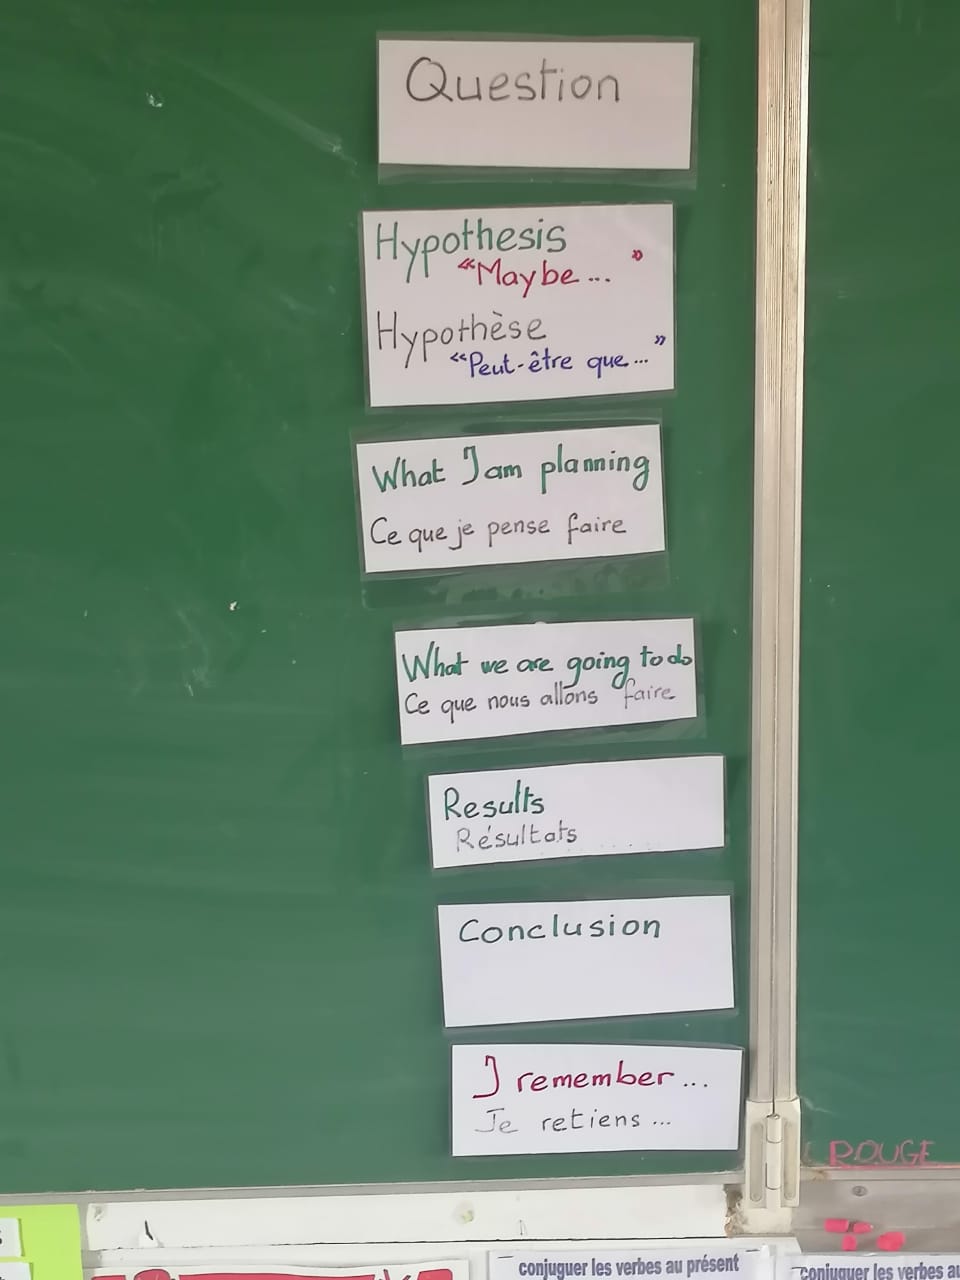 Question
Hypothesis
"Maybe... "
Hypothèse
"Peut-être que... "
What I am planning
Ce que je pense faire
What we are going to do
Ce que nous allons faire
Results
Résultats
Conclusion
I remember...
Je retiens...
ROUGE
conjuguer les verbes au présent
conjuguer les verbes au